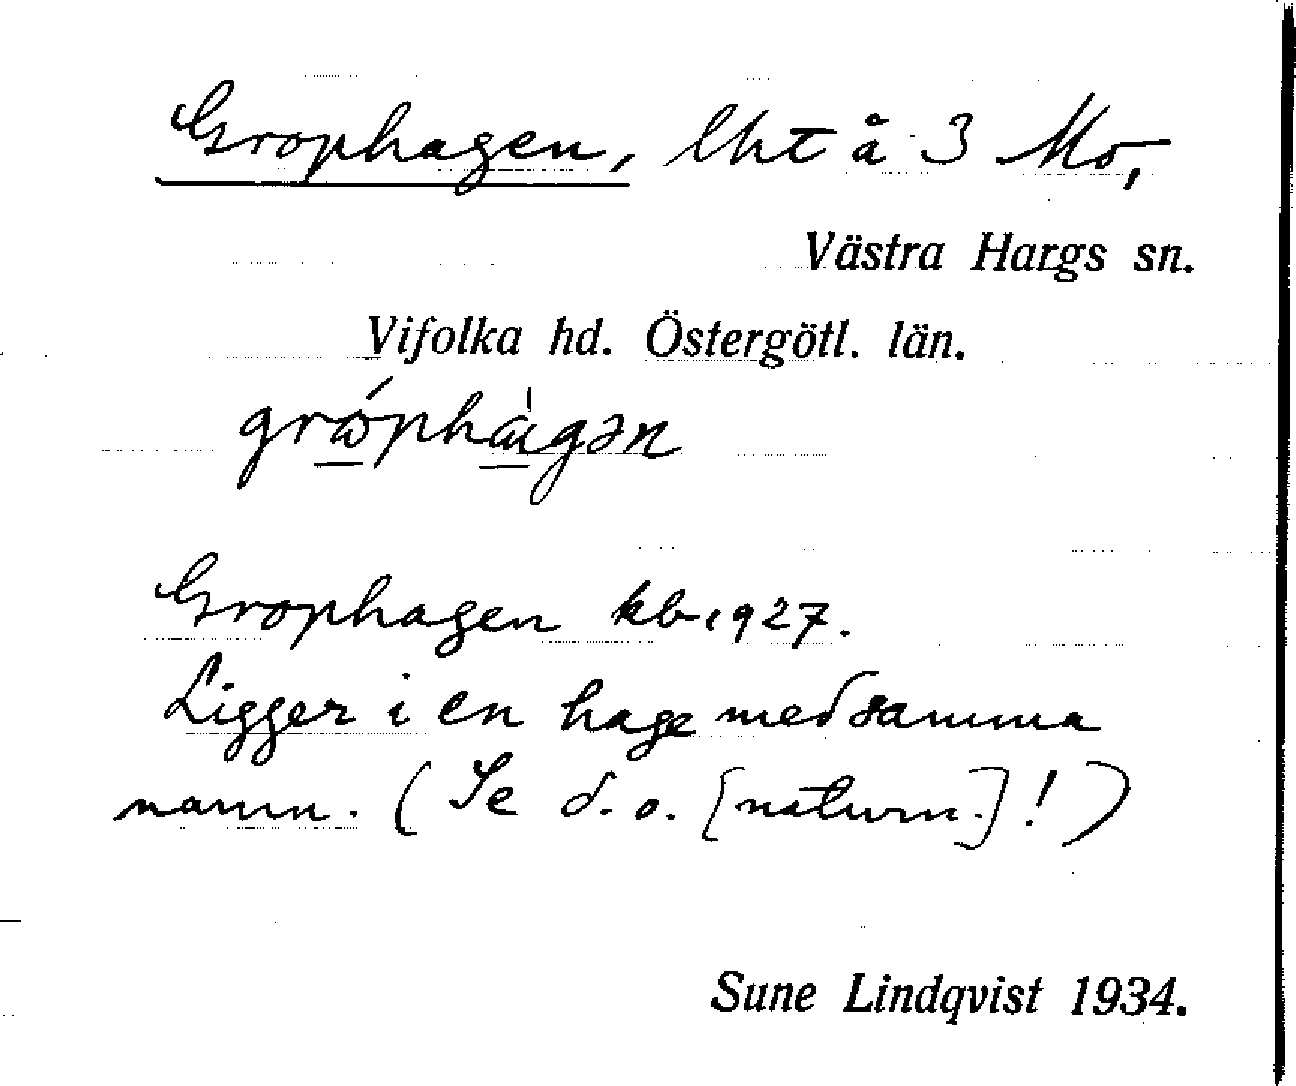 Grophagen, lht å 3 Mo,
Västra Hargs sn.
Vifolka hd. Östergötl. län.
Grophagen kb 1927.
Ligger i en hage med samma
namn. (Se d. o. [naturn.]!)
Sune Lindqvist 1934.